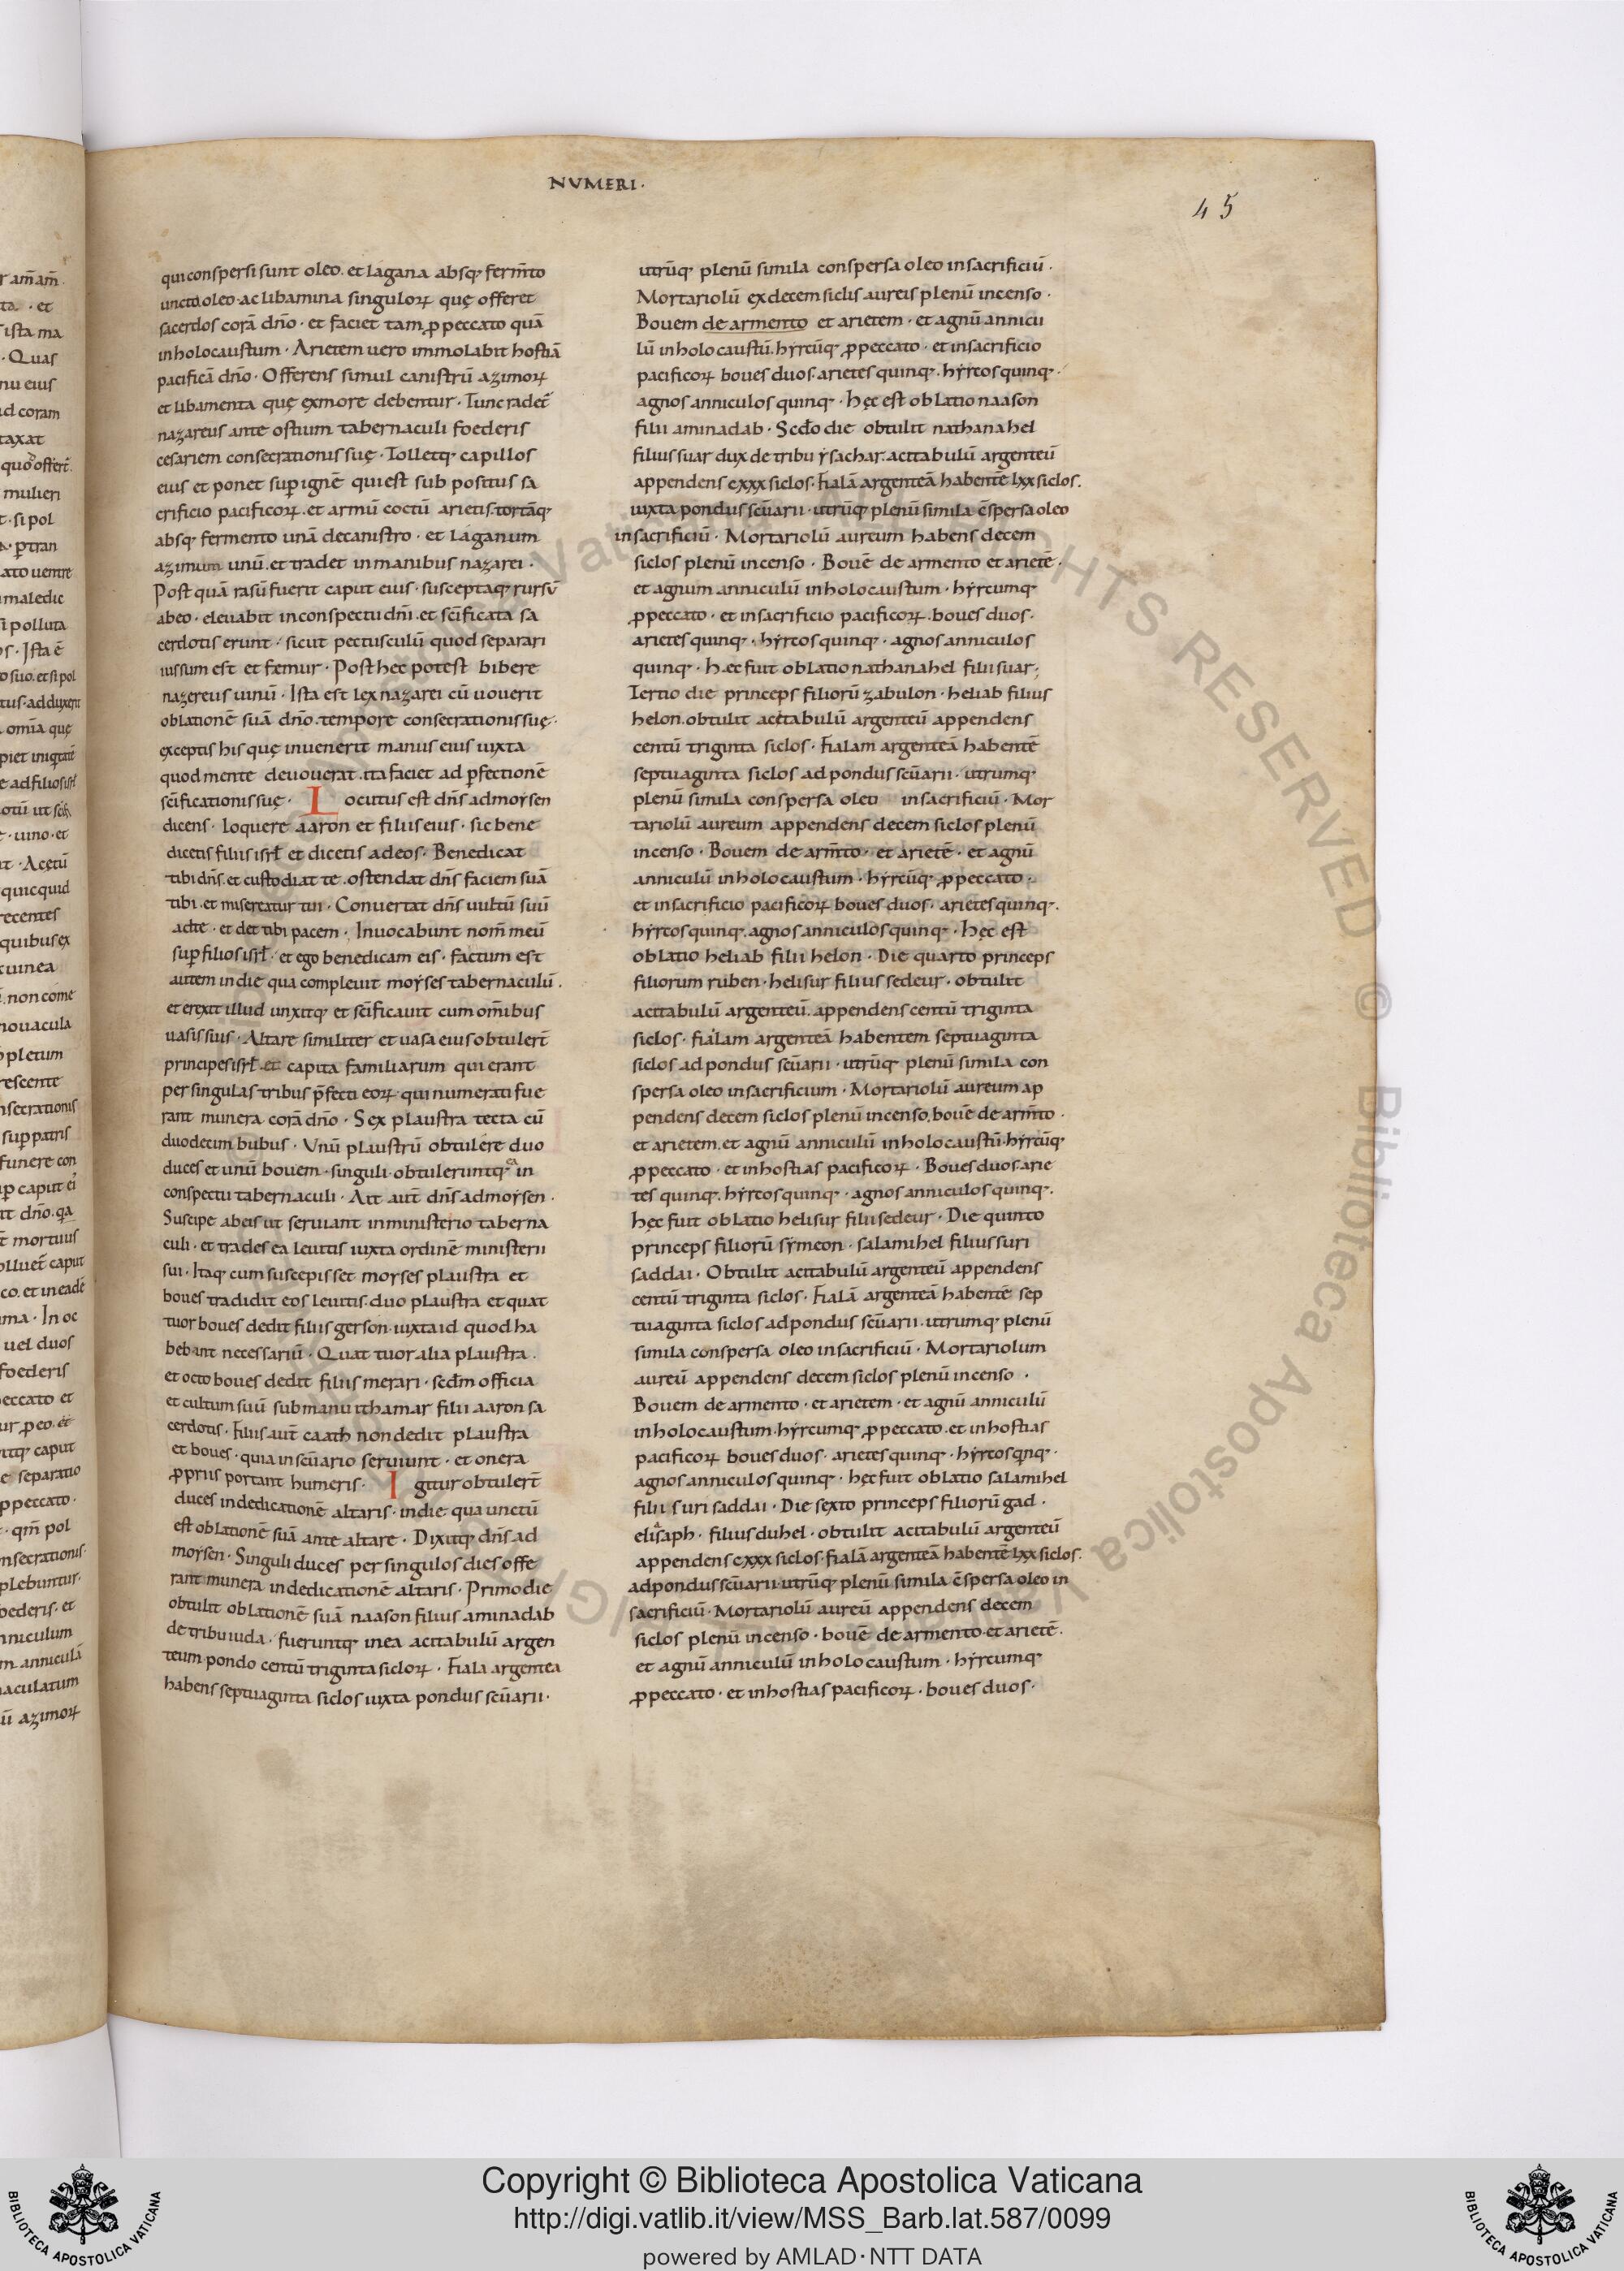 NVMERI·
45
qui conspersi sunt oleo. et lagana absq; ferm̄to
uncta oleo· ac libamina singuloꝝ quę offeret
sacerdos corā dn̄o· et faciet tam ꝓ peccato quā
in holocaustum· Arietem uero immolabit hostiā
pacificā dn̄o· Offerens simul canistrū azimoꝝ
et libamenta quę ex more debentur· Tunc radet̄
nazareus ante ostium tabernaculi foederis
cesariem consecrationis suę· Tolletq; capillos
eius et ponet suꝑ ignē qui est sub positus sa
crificio pacificoꝝ. et armū coctū arietis. tortāq;
absq; fermento unā de canistro· et laganum
azimum unū. et tradet in manibus nazarei·
Post quā rasū fuerit caput eius· susceptaq; rursū
ab eo· eleuabit in conspectu dn̄i. et sc̄ificata sa
cerdotis erunt· sicut pectusculū quod separari
iussum est et fæmur· Post hec potest bibere
nazereus uinū· Ista est lex nazarei cū uouerit
oblationē suā dn̄o. tempore consecrationis suę·
exceptis his quę inuenerit manus eius iuxta
quod mente deuouerat. ita faciet ad ꝑfectionē
sc̄ificationis suę· Locutus est dn̄s ad moẏsen
dicens· loquere aaron et filiis eius· sic bene
dicetis filiis isrł et dicetis ad eos· Benedicat
tibi dn̄s. et custodiat te. ostendat dn̄s faciem suā
tibi· et misereatur tui· Conuertat dn̄s uultū suū
ad te· et det tibi pacem· Inuocabunt nom̄ meū
suꝑ filios isrł· et ego benedicam eis· factum est
autem in die qua compleuit moẏses tabernaculū·
et erexit illud unxitq; et sc̄ificauit cum om̄ibus
uasis suis· Altare similiter et uasa eius obtuler̄t
principes isrł· et capita familiarum qui erant
per singulas tribus p̄fecti eoꝝ· qui numerati fue
rant munera corā dn̄o· Sex plaustra tecta cū
duodecim bubus· Unū plaustrū obtulere duo
duces et unū bouem· singuli· obtuleruntq; ea in
conspectu tabernaculi· Ait aut̄ dn̄s ad moẏsen·
Suscipe ab eis ut seruiant in ministerio taberna
culi· et trades ea leuitis iuxta ordinē ministerii
sui· Itaq; cum suscepisset moẏses plaustra et
boues tradidit eos leuitis· duo plaustra et quat
tuor boues dedit filiis gerson· iuxta id quod ha
bebant necessariū· Quattuor alia plaustra.
et octo boues dedit filiis merari· scdm̄ officia
et cultum suū sub manu ithamar filii aaron sa
cerdotis· Filiis aut̄ caath non dedit plaustra
et boues· quia in scūario seruiunt· et onera
ꝓpriis portant humeris· Igitur obtuler̄t
duces in dedicationē altaris· in die qua unctū
est oblationē suā ante altare· Dixitq; dn̄s ad
moẏsen· Singuli duces per singulos dies offe
rant munera in dedicationē altaris· Primo die
obtulit oblationē suā naason filius aminadab
de tribu iuda· fueruntq; in ea acitabulū argen
teum· pondo centū triginta sicloꝝ· Fiala argentea
habens septuaginta siclos iuxta pondus scūarii·
utrūq; plenū simila conspersa oleo in sacrificiū·
Mortariolū ex decem siclis aureis plenū incenso·
Bouem de armento et arietem· et agnū annicu
lū in holocaustū. hẏrcūq; ꝓ peccato· et in sacrificio
pacificoꝝ boues duos· arietes quinq;· hẏrcos quinq;·
agnos anniculos quinq;· hęc est oblatio naason
filii aminadab· Scd̄o die obtulit nathanahel
filius suar dux de tribu ẏsachar· acitabulū argenteū
appendens cxxx siclos· fialā argenteā habentē lxx siclos·
iuxta pondus scūarii· utrūq; plenū simila c̄spersa oleo
in sacrificiū· Mortariolū aureum habens decem
siclos plenū incenso· Bouē de armento et arietē·
et agnum anniculū in holocaustum· hẏrcumq;
ꝓ peccato· et in sacrificio pacificoꝝ· boues duos·
arietes quinq;· hẏrcos quinq;· agnos anniculos
quinq;· Hæc fuit oblatio nathanahel filii suar;
Tertio die princeps filiorū zabulon· heliab filius
helon. obtulit acetabulū argenteū appendens
centū triginta siclos· Fialam argenteā habentē
septuaginta siclos ad pondus scūarii· utrumq;
plenū simila conspersa oleo in sacrificiū· Mor
tariolū aureum appendens decem siclos plenū
incenso· Bouem de arm̄to· et arietē· et agnū
anniculū in holocaustum· hẏrcūq; ꝓ peccato·
et in sacrificio pacificoꝝ boues duos· arietes quinq;·
hẏrcos quinq;. agnos anniculos quinq;· Hęc est
oblatio heliab filii helon· Die quarto princeps
filiorum ruben· helisur filius sedeur· obtulit
acitabulū argenteū. appendens centū triginta
siclos· fialam argenteā habentem septuaginta
siclos ad pondus scūarii· utrūq; plenū simila con
spersa oleo in sacrificium· Mortariolū aureum ap
pendens decem siclos plenū incenso, bouē de arm̄to·
et arietem. et agnū anniculū in holocaustū· hẏrcūq;
ꝓ peccato· et in hostias pacificoꝝ· Boues duos· arie
tes quinq;. hẏrcos quinq;· agnos anniculos quinq;.
hęc fuit oblatio helisur filii sedeur· Die quinto
princeps filiorū sẏmeon· salamihel filius suri
saddai· Obtulit acitabulū argenteū appendens
centū triginta siclos· Fialā argenteā habentē sep
tuaginta siclos ad pondus scūarii· utrumq; plenū
simila conspersa oleo in sacrificiū· Mortariolum
aureū appendens decem siclos plenū incenso·
Bouem de armento· et arietem· et agnū anniculū
in holocaustum· hẏrcumq; ꝓ peccato. et in hostias
pacificoꝝ boues duos· arietes quinq;· hẏrcos qnq;·
agnos anniculos quinq;· hęc fuit oblatio salamihel
filii suri saddai· Die sexto princeps filiorū gad·
elisaph· filius duhel· obtulit acitabulū argenteū
appendens cxxx siclos· fialā argenteā habentē lxx siclos·
ad pondus scūarii· utrūq; plenū simila c̄spersa oleo in
sacrificiū· Mortariolū aureū appendens decem
siclos plenū incenso· bouē de armento· et arietē·
et agnū anniculū in holocaustum· hẏrcumq;
ꝓ peccato· et in hostias pacificoꝝ· boues duos·
Copyright © Biblioteca Apostolica Vaticana
http://digi.vatlib.it/view/MSS_Barb.lat.587/0099
powered by AMLAD·NTT DATA
BIBLIOTECA APOSTOLICA VATICANA
BIBLIOTECA APOSTOLICA VATICANA